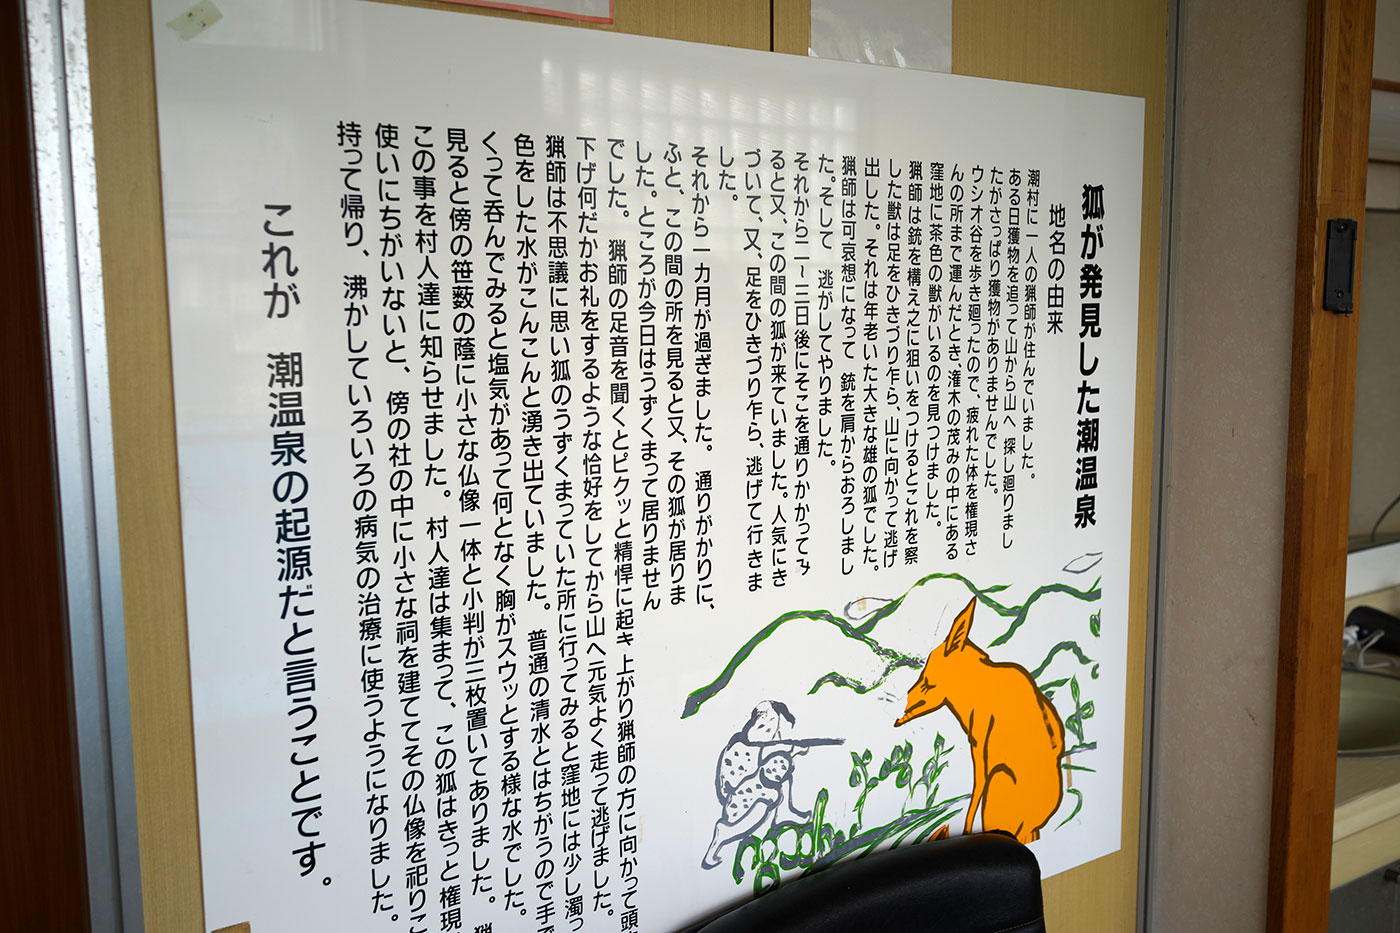 狐が発見した潮温泉
地名の由来
潮村に一人の猟師が住んでいました。
ある日獲物を追って山から山へ 探し廻りまし
たがさっぱり獲物がありませんでした。
ウシオ谷を歩き廻ったので、疲れた体を権現さ
んの所まで運んだとき、潅木の茂みの中にある
窪地に茶色の獣がいるのを見つけました。
猟師は銃を構え之に狙いをつけるとこれを察
した獣は足をひきづり乍ら、山に向かって逃げ
出した。それは年老いた大きな雄の狐でした。
猟師は可哀想になって 銃を肩からおろしまし
た。そして 逃がしてやりました。
それから二〜三日後にそこを通りかかってみ
ると又、この間の狐が来ていました。人気にき
づいて、又、足をひきづり乍ら、逃げて行きま
した。
それから一カ月が過ぎました。 通りがかりに、
ふと、この間の所を見ると又、その狐が居りま
した。ところが今日はうずくまって居りません
でした。 猟師の足音を聞くとピクッと精悍に起き 上がり猟師の方に向かって頭
下げ何だかお礼をするような恰好をしてから山へ元気よく走って逃げました。
猟師は不思議に思い狐のうずくまっていた所に行ってみると窪地には少し濁っ
色をした水がこんこんと湧き出ていました。 普通の清水とはちがうので手で
くって呑んでみると塩気があって何となく胸がスウッとする様な水でした。
見ると傍の笹薮の蔭に小さな仏像一体と小判が三枚置いてありました。
この事を村人達に知らせました。 村人達は集まって、この狐はきっと権現
使いにちがいないと、傍の社の中に小さな祠を建ててその仏像を祀りこ
持って帰り、沸かしていろいろの病気の治療に使うようになりました。
これが 潮温泉の起源だと言うことです。